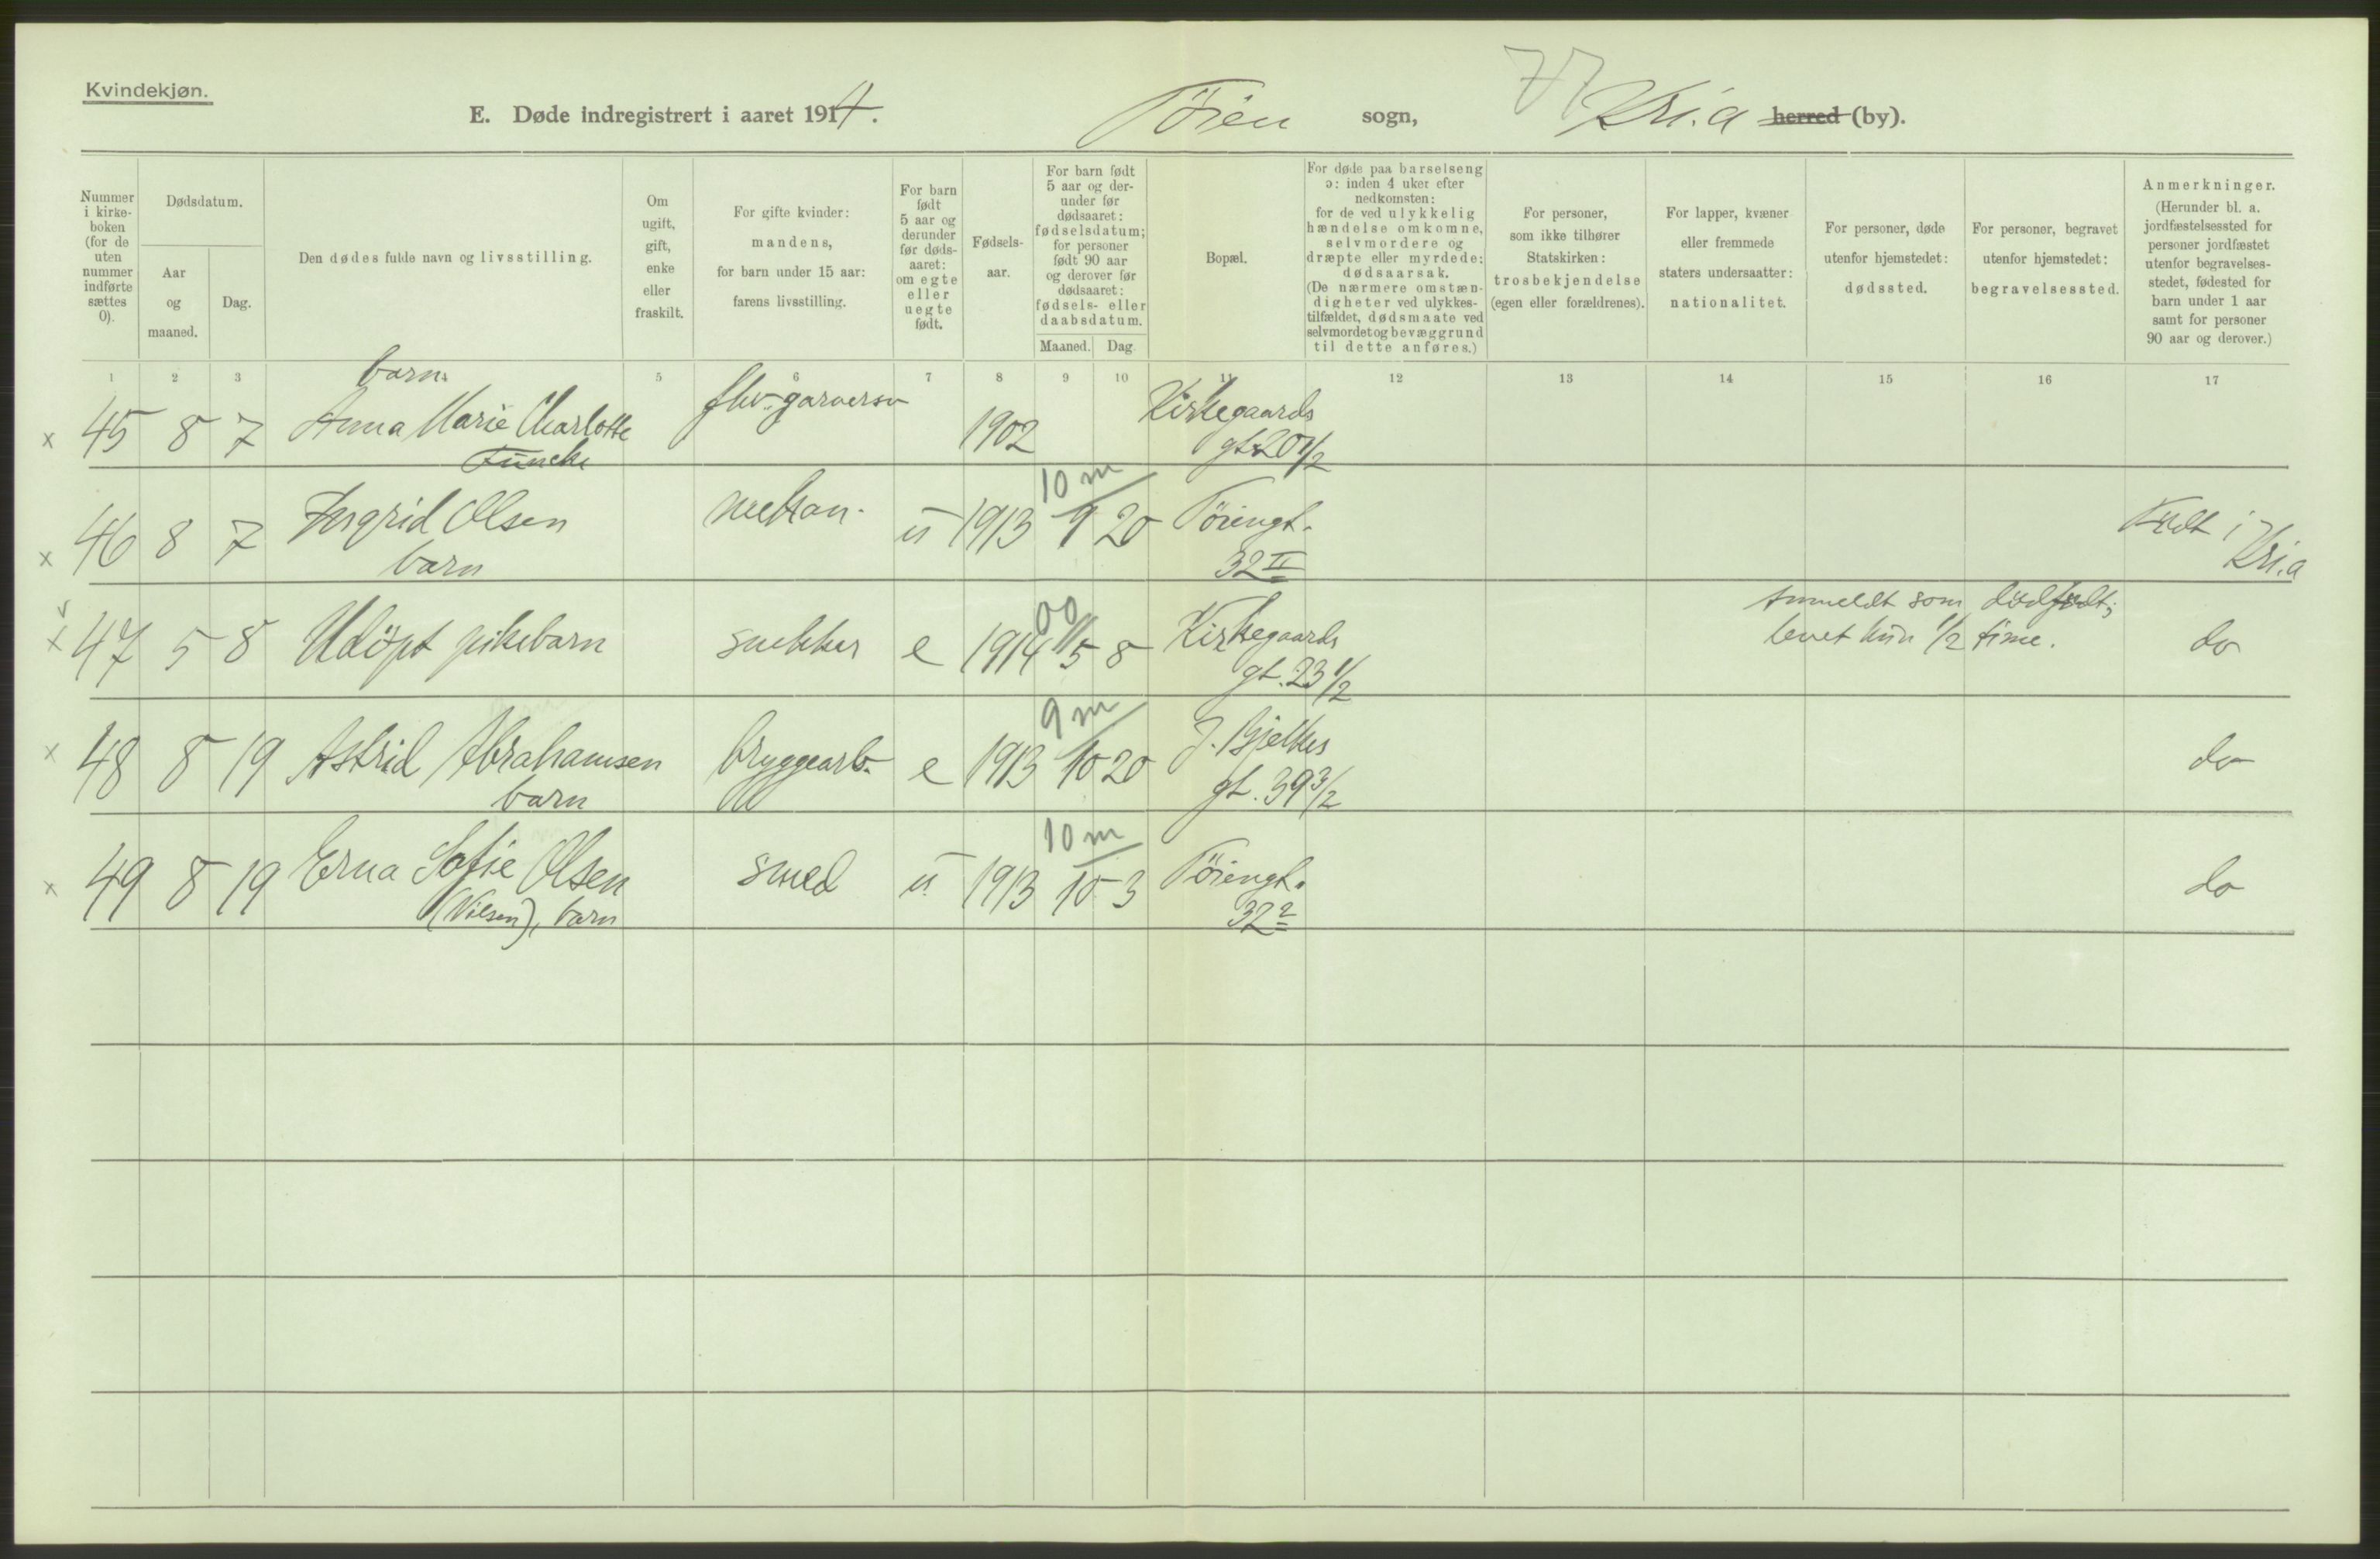 Kvindekjøn.
E. Døde indregistrert i aaret 1914. Töien sogn, Kri.a herred (by).
Nummer
i kirke-
boken
(for de
uten
nummer
indførte
sættes
0).
Dødsdatum.
Aar
og
maaned.
Dag.
Den dødes fulde navn og livsstilling.
Om
ugift,
gift,
enke
eller
fraskilt.
For gifte kvinder:
mandens,
for barn under 15 aar:
farens livsstilling.
For barn
født
5 aar og
derunder
før døds-
aaret:
om egte
eller
uegte
født.
Fødsels-
aar.
For barn født
5 aar og der-
under før
dødsaaret:
fødselsdatum;
for personer
født 90 aar
og derover før
dødsaaret:
fødsels- eller
daabsdatum.
Maaned. Dag
Bopæl.
For døde paa barselseng
ɔ: inden 4 uker efter
nedkomsten:
for de ved ulykkelig
hændelse omkomne,
selvmordere og
dræpte eller myrdede:
dødsaarsak.
(De nærmere omstæn-
digheter ved ulykkes-
tilfældet, dødsmaate ved
selvmordet og bevæggrund
til dette anføres.)
For personer,
som ikke tilhører
Statskirken:
trosbekjendelse
(egen eller forældrenes).
For lapper, kvæner
eller fremmede
staters undersaatter:
nationalitet.
For personer, døde
utenfor hjemstedet:
dødssted.
For personer, begravet
utenfor hjemstedet:
begravelsessted.
Anmerkninger.
(Herunder bl. a.
jordfæstelsessted for
personer jordfæstet
utenfor begravelses-
stedet, fødested for
barn under 1 aar
samt for personer
90 aar og derover.)
1 2 3 5 6 7 8 9 10 11 12 13 14 15 16 17
barn
x 45 8 7 Anna Marie Charlotte fhv. garversv 1902 Kirkegaards
Funcke gt. 20 1/2
10 m
x 46 8 7 Ingrid Olsen mekan. u 1913 9 20 Töiengt. Født i
barn 32 II Kri.a
00 Anmeldt som dødfødt;
x 47 5 8 Udöpt pikebarn snekker e 1914 5 8 Kirkegaards levet kun 1/2 time. do
gt. 23 1/2
9 m
x 48 8 19 Astrid Abrahamsen bryggearb. e 1913 10 20 J. Bjelkes do
barn gt. 39 3/2
10 m
x 49 8 19 Erna Sofie Olsen smed u 1913 10 3 Töiengt. do
(Nilsen), barn 32 2